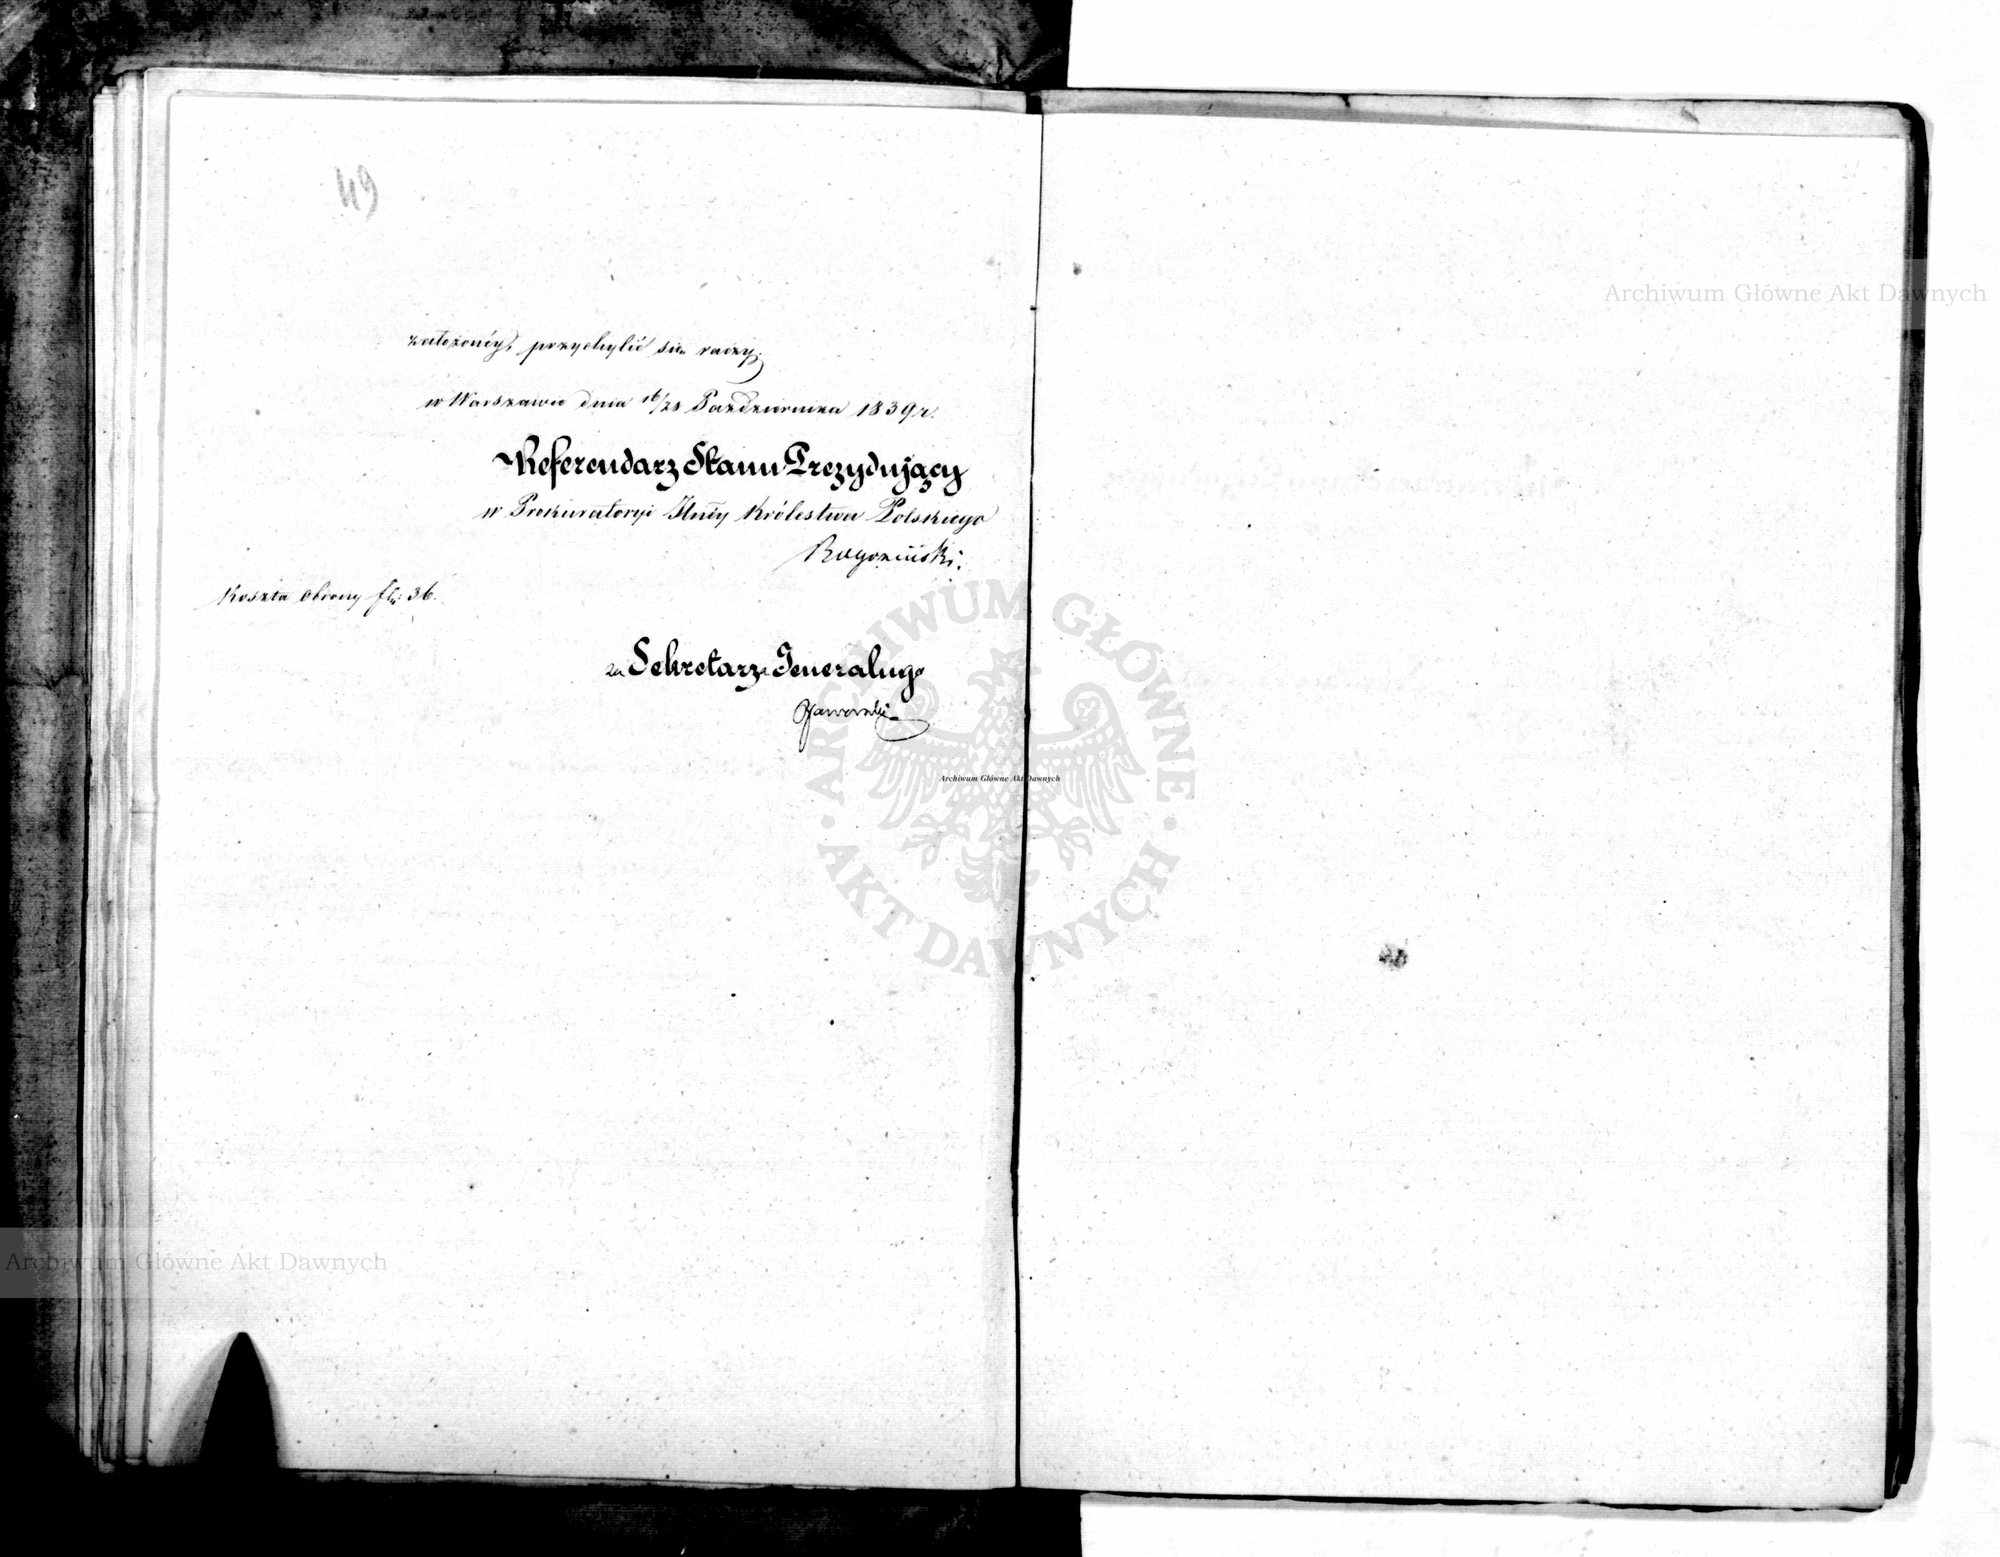 49
założonéy, przychylić się raczy.
w Warszawie dnia 16/28 Października 1839 r.
Referendarz Stanu Prezydujący
w Prokuratoryi Królestwa Polskiego
Koszta Obrony fl: 36.
za Sekretarza Jeneralnego
Jaworski
ARCHIWUM GŁÓWNE AKT DAWNYCH
Archiwum Główne Akt Dawnych
Archiwum Główne Akt Dawnych
Archiwum Główne Akt Dawnych